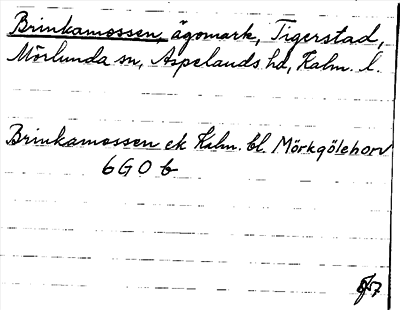 Brinkamossen, ägomark, Tigerstad,
Mörlunda sn, Aspelands hd, Kalm. l.
Brinkamossen ek Kalm. bl. Mörkgölehorv
6G0b